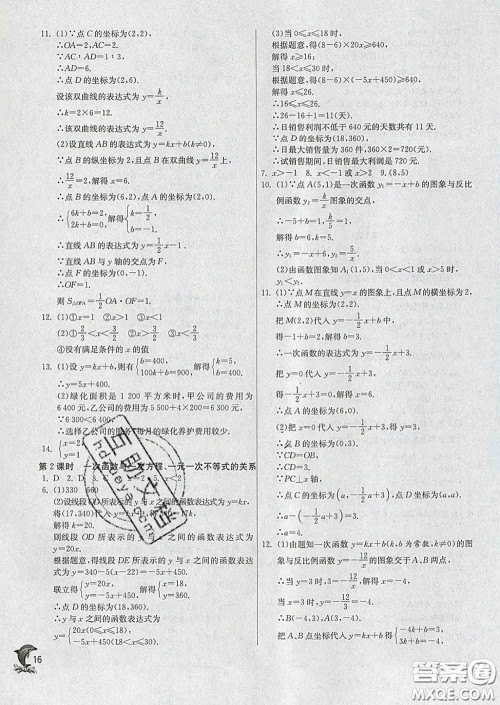 11. (1)∵点C的坐标为(2,2),
∴OA=2,AC=2.
∵AC:AD=1:3,
∴AD=6.
∴点D的坐标为(2,6).
设该双曲线的表达式为y=k/x
∴k=2×6=12.
∴该双曲线的表达式为y=12/x
(2)设直线AB的表达式为y=kx+b(k≠0).
∵点B的纵坐标为2,且点B在双曲线y=12/x上,
∴12/x=2.解得x=6.
∴点B的坐标为(6,2).
∴{6k+b=2, 2k+b=0, 解得{k=1/2, b=-1.
∴直线AB的表达式为y=1/2x-1.
∵直线AB与y轴的交点为F,
∴点F的坐标为(0,-1).
∴OF=1.
④没有满足条件的x的值
13. (1)设y=kx+b,则有{b=400, 100k+b=900, 解得{k=5, b=400.
∴y=5x+400.
(2)绿化面积是1 200平方米时,甲公司的费用为
6 400元,乙公司的费用为5 500+4×200=6 300(元).
∵6 300<6 400,
∴选择乙公司的服务,每月的绿化养护费用较少.
14. {x=1, y=2
第2课时 一次函数与二元一次方程、一元一次不等式的关系
6. (1)330 660
(2)设线段OD所表示的y与x之间的函数表达式为y=kx,
将(17,340)代入y=kx,得340=17k.
解得k=20.
则线段OD所表示的y与x之间的函数表达式为
y=20x.
根据题意,得线段DE所表示的y与x之间的函数表达式
为y=340-5(x-22)=-5x+450.
联立得{y=20x, y=-5x+450, 解得{x=18, y=360.
∴点D的坐标为(18,360).
∴y与x之间的函数表达式为
y={20x(0≤x≤18), -5x+450(18<x≤30).
16
(3)当0≤x≤18时,
根据题意,得(8-6)×20x≥640.
解得x≥16;
当18<x≤30时,
根据题意,得(8-6)×(-5x+450)≥640.
解得x≤26.
∴16≤x≤26.
∴26-16+1=11(天).
∴日销售利润不低于640元的天数共有11天.
∵点D的坐标为(18,360),
∴日最大销售量为360件,360×2=720(元).
∴试销售期间,日销售最大利润是720元.
7. x>-1 8. x>-1 9. (8,5)
10. (1)∵点A(5,1)是一次函数y₁=-x+b的图象与反比
例函数y₂=5/x图象的交点,
∴-5+b=1,
∴b=6.
∴y₁=-x+6.
(2)由函数图象知A₁(1,5),当0<x<1或x>5时,
y₁<y₂.
11. (1)∵点M在直线y=x的图象上,且点M的横坐标为2.
∴点M的坐标为(2,2).
把M(2,2)代入y=-1/2x+b中,得b=3.
∴一次函数的表达式为y=-1/2x+3.
把y=0代入y=-1/2x+3,得x=6.
∴点A的坐标为(6,0).
把x=0代入y=-1/2x+3,得y=3.
∴CD=3.
∴a-(-1/2a+3)=3.
∴a=4.
12. (1)由题知一次函数y=kx+b(k,b为常数,k≠0)的图象
与反比例函数y=-12/x的图象交于A、B两点,
∴当x=3时,y=-12/3=-4.
当y=3时,3=-12/x,解得x=-4.
把点A、B的坐标代入y=kx+b得{3k+b=-4, -4k+b=3.
答案圈
MXQE.COM